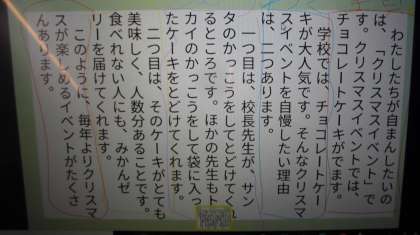 わたしたちが自まんしたいの
は、「クリスマスイベント」で
す。クリスマスイベントでは、
チョコレートケーキがでます。
学校では、チョコレートケー
キが大人気です。そんなクリスマ
スイベントを自慢したい理由
は、二つあります。
一つ目は、校長先生が、サン
タのかっこうをしてとどけてくれ
るところです。ほかの先生も
カイのかっこうをして袋に入っ
たケーキをとどけてくれます。
二つ目は、そのケーキがとても
美味しく、人数分あることです。
食べれない人にも、みかんゼ
リーを届けてくれます。
このように、毎年よりクリスマ
スが楽しめるイベントがたくさ
んあります。